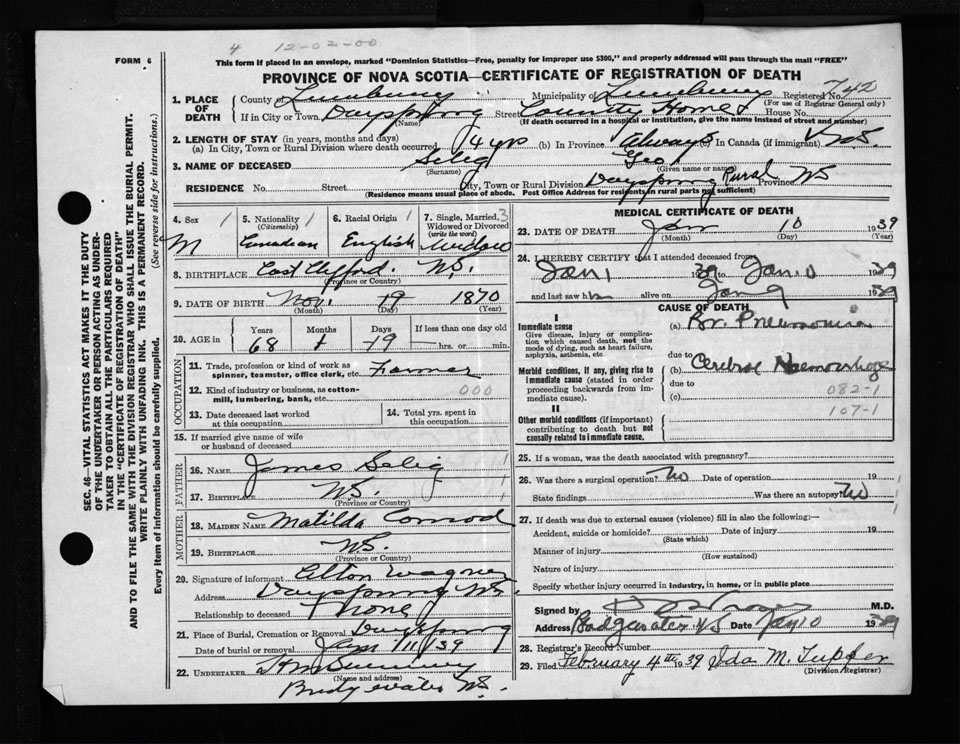 4 12-02-00
FORM 6
This form if placed in an envelope, marked "Dominion Statistics—Free, penalty for improper use $300," and properly addressed will pass through the mail "FREE"
PROVINCE OF NOVA SCOTIA—CERTIFICATE OF REGISTRATION OF DEATH
SEC. 46—VITAL STATISTICS ACT MAKES IT THE DUTY
OF THE UNDERTAKER OR PERSON ACTING AS UNDER-
TAKER TO OBTAIN ALL THE PARTICULARS REQUIRED
IN THE "CERTIFICATE OF REGISTRATION OF DEATH"
AND TO FILE THE SAME WITH THE DIVISION REGISTRAR WHO SHALL ISSUE THE BURIAL PERMIT.
WRITE PLAINLY WITH UNFADING INK. THIS IS A PERMANENT RECORD.
Every item of information should be carefully supplied. (See reverse side for instructions.)
1. PLACE OF DEATH County of Lunenburg Municipality of Lunenburg Registered No. 742
(For use of Registrar General only)
If in City or Town Dayspring Street County Home House No.
(Name) (If death occurred in a hospital or institution, give the name instead of street and number)
2. LENGTH OF STAY (in years, months and days)
(a) In City, Town or Rural Division where death occurred 14 yrs (b) In Province Always (c) In Canada (if immigrant) NS.
3. NAME OF DECEASED Selig Geo
(Surname) (Given name or names)
RESIDENCE No. Street City, Town or Rural Division Dayspring Rural Province NS
(Residence means usual place of abode. Post Office Address for residents in rural parts not sufficient)
4. Sex 1 5. Nationality 1 6. Racial Origin 1 7. Single, Married, 3
(Citizenship) Widowed or Divorced
(write the word)
M Canadian English Widow
8. BIRTHPLACE East Clifford. N.S.
(Province or Country)
9. DATE OF BIRTH Nov. 19 1870
(Month) (Day) (Year)
10. AGE in Years Months Days If less than one day old
68 1 19 hrs. or min.
OCCUPATION
11. Trade, profession or kind of work as
spinner, teamster, office clerk, etc. Farmer
12. Kind of industry or business, as cotton-
mill, lumbering, bank, etc. 000
13. Date deceased last worked
at this occupation
14. Total yrs. spent in
this occupation
15. If married give name of wife
or husband of deceased
FATHER
16. NAME James Selig
17. BIRTHPLACE N.S.
(Province or Country)
MOTHER
18. MAIDEN NAME Matilda Conrod
19. BIRTHPLACE N.S.
(Province or Country)
20. Signature of informant Elton Wagner
Address Dayspring N.S.
Relationship to deceased None
21. Place of Burial, Cremation or Removal Dayspring
Date of burial or removal Jan 11/39
22. UNDERTAKER
(Name and address)
Bridgewater N.S.
MEDICAL CERTIFICATE OF DEATH
23. DATE OF DEATH Jan 10 1939
(Month) (Day) (Year)
24. I HEREBY CERTIFY that I attended deceased from
Jan 1 39 to Jan 10 1939
and last saw him alive on Jan 9 1939
CAUSE OF DEATH
I
Immediate cause (a) Br. Pneumonia
Give disease, injury or complica-
tion which caused death, not the
mode of dying, such as heart failure,
asphyxia, asthenia, etc.
due to
Morbid conditions, if any, giving rise to
immediate cause (stated in order
proceeding backwards from im-
mediate cause).
(b) Cerebral Haemorrhage
due to 082-1
(c)
107-1
II
Other morbid conditions (if important)
contributing to death but not
causally related to immediate cause.
25. If a woman, was the death associated with pregnancy?
26. Was there a surgical operation? No Date of operation 19
State findings Was there an autopsy? No
27. If death was due to external causes (violence) fill in also the following:—
Accident, suicide or homicide? Date of injury 19
(State which)
Manner of injury
(How sustained)
Nature of injury
Specify whether injury occurred in industry, in home, or in public place
Signed by M.D.
Address Bridgewater NS Date Jan 10 1939
28. Registrar's Record Number
29. Filed February 4th 1939 Ida M. Tupper
(Division Registrar)